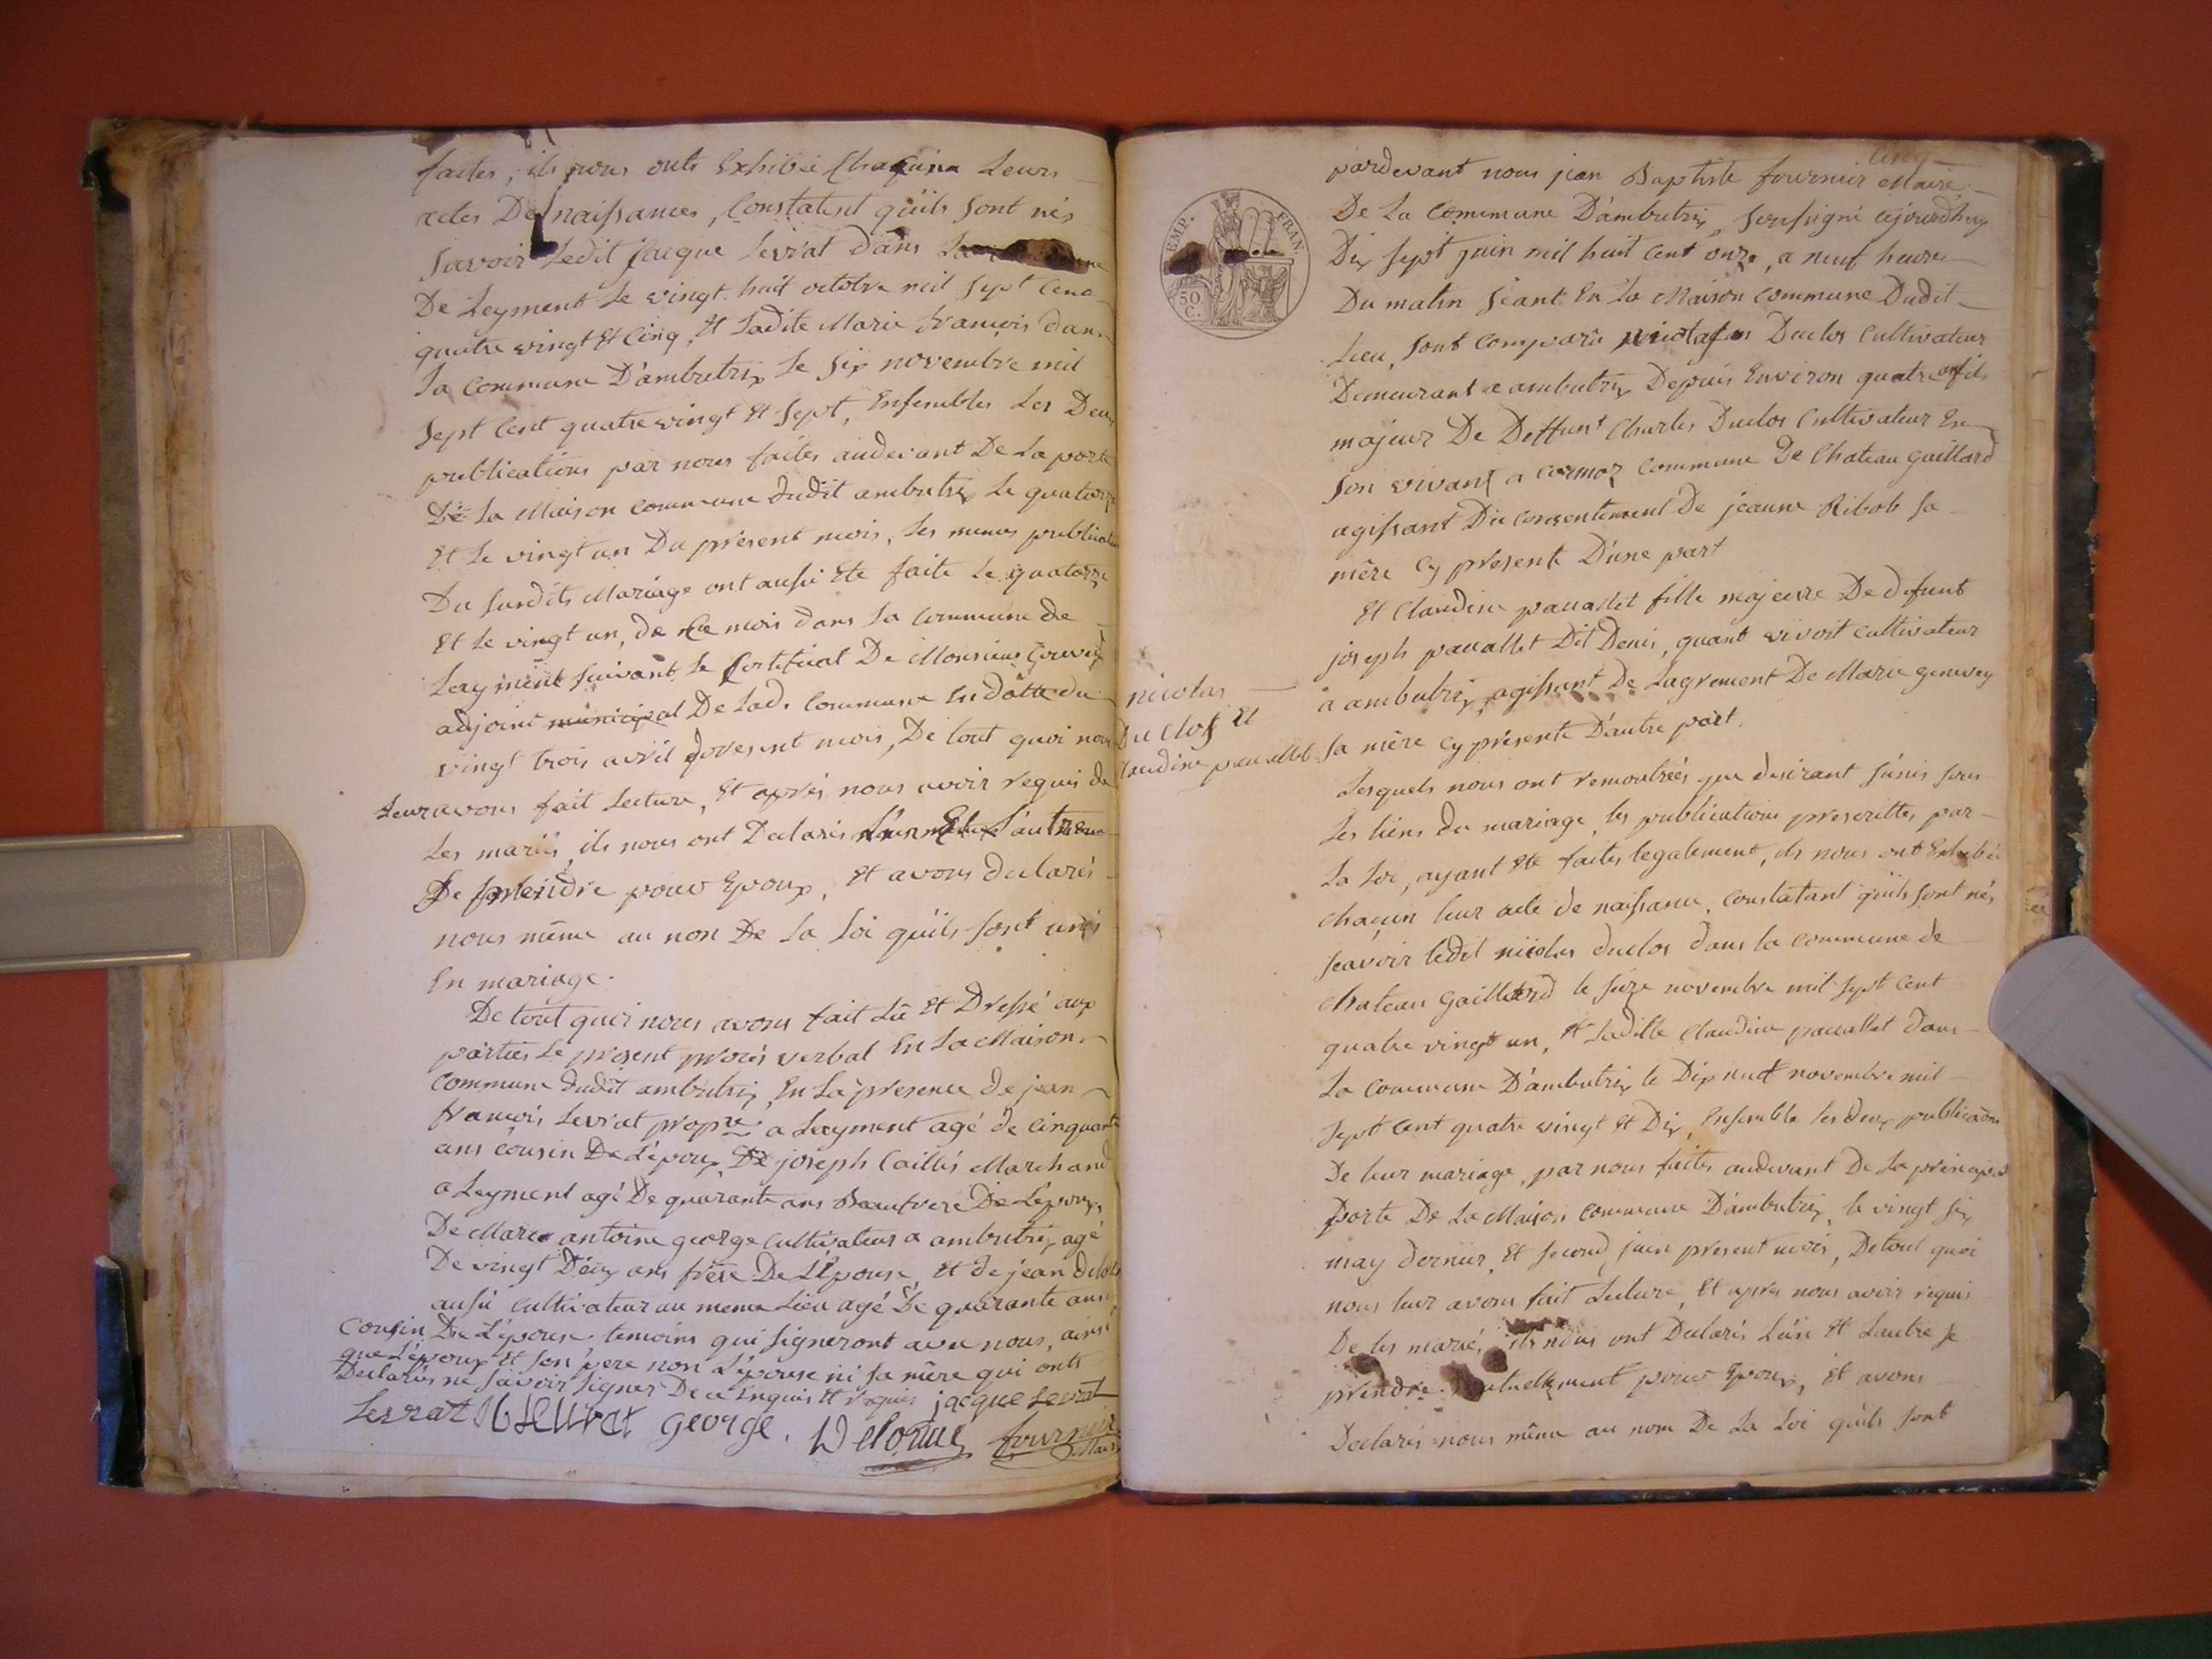 faites, ils nous onts Exhibée Chaquina Leurs
actes De naissances, Constatent quils sont nés
savoir Ledit Jacque Levrat dans La
De Leyment Le vingt huit octobre mil sept Cent
quatre vingt Et Cinq, Et Ladite Marie françois dans
La Commune D'ambutrix Le six novembre mil
Sept Cent quatre vingt Et sept, Ensembles Les Deux
publications par nous faites audevant De La porte
De La Maison Commune dudit ambutrix Le quatorze
Et Le vingt un Du présent mois, Les memes publications
Du susdits Mariage ont aussi Eté faite Le quatorze
Et Le vingt un, de Ce mois dans La Commune de
Leyment suivant Le Certificat De Monsieur
adjoint municipal De Lad. Commune En datte du
vingt trois avril present mois, De tout quoi nous
Leur avons fait Lecture, Et après nous avoir requis de
Les mariés, ils nous ont Declarés L'un Et L'autre
De prendre pour Epoux, Et avons declarés
nous même au non De La Loi quils sont unis
En mariage.
De tout quoi nous avons fait Lû Et Dressé aux
parties Le present procés verbal En La Maison
Commune dudit ambutrix, En La presence de jean
françois Levrat propre a Leyment agé de Cinquante
ans cousin De L'époux, De joseph Caillés Marchand
a Leyment agé De quarante ans Beaufrere De L'époux,
De Marc antoine george Cultivateur a ambutrix agé
De vingt Deux ans frère De L'épouse, Et de jean
aussi Cultivateur au meme Lieu agé De quarante ans
Cousin De L'épouse, temoins qui signeront avec nous, ainsi
que L'époux Et son pere non L'épouse ni sa mère qui onts
Declarés ne savoir signer De ce Enquis Et requis jacque Levrat
Levrat george. Delorme fournier
Maire
EMP. FRAN.
50
C.
pardevant nous jean Baptiste fournier Maire
De La Commune D'ambutrix, soussigné cejourdhuy
Dix sept juin mil huit Cent onze, a neuf heures
Du matin séant En La Maison Commune Dudit
Lieu, sont Comparû nicolas Duclos Cultivateur
Demeurant a ambutrix Depuis Environ quatre ans fils
majeur De Deffunt Charles Duclos Cultivateur En
son vivant a Cormoz Commune De Chateau gaillard
agissant Du Consentement De jeanne Ribob sa
mère Cy presente D'une part
Et Claudine pauallet fille majeure De defunt
joseph pauallet Dit Denis, quant vivoit Cultivateur
a ambutrix, agissant De Lagrement De Marie genevey
sa mère Cy presente D'autre part.
nicolas
Duclos Et
Claudine pauallet
Lesquels nous ont remontrées que desirant s'unir sous
Les liens du mariage, les publications prescrittes par
La Loi, ayant Eté faites legalement, ils nous ont Exhibée
chaçun leur acte de naissance, constatant quils sont nés
sçavoir ledit nicolas duclos dans la commune de
chateau Gaillard le seize novembre mil sept cent
quatre vingt un, Et Laditte Claudine pauallet dans
La Commune D'ambutrix le Dix neuf novembre mil
Sept Cent quatre vingt Et Dix, Ensemble les deux publications
De leur mariage, par nous faites audevant De La principal
Porte De La Maison Commune D'ambutrix, le vingt six
may dernier, Et second juin present mois, De tout quoi
nous leur avons fait Lecture, Et apres nous avoir requis
De les marié, ils nous ont Declarés L'un Et Lautre se
prendre mutuellement pour Epoux, Et avons
Declarés nous même au nom De La Loi quils sont